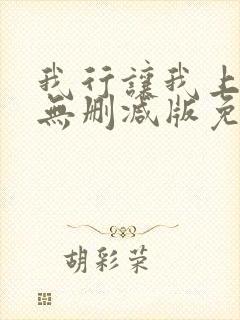 我行讓我上
無刪减版免
胡彩荣